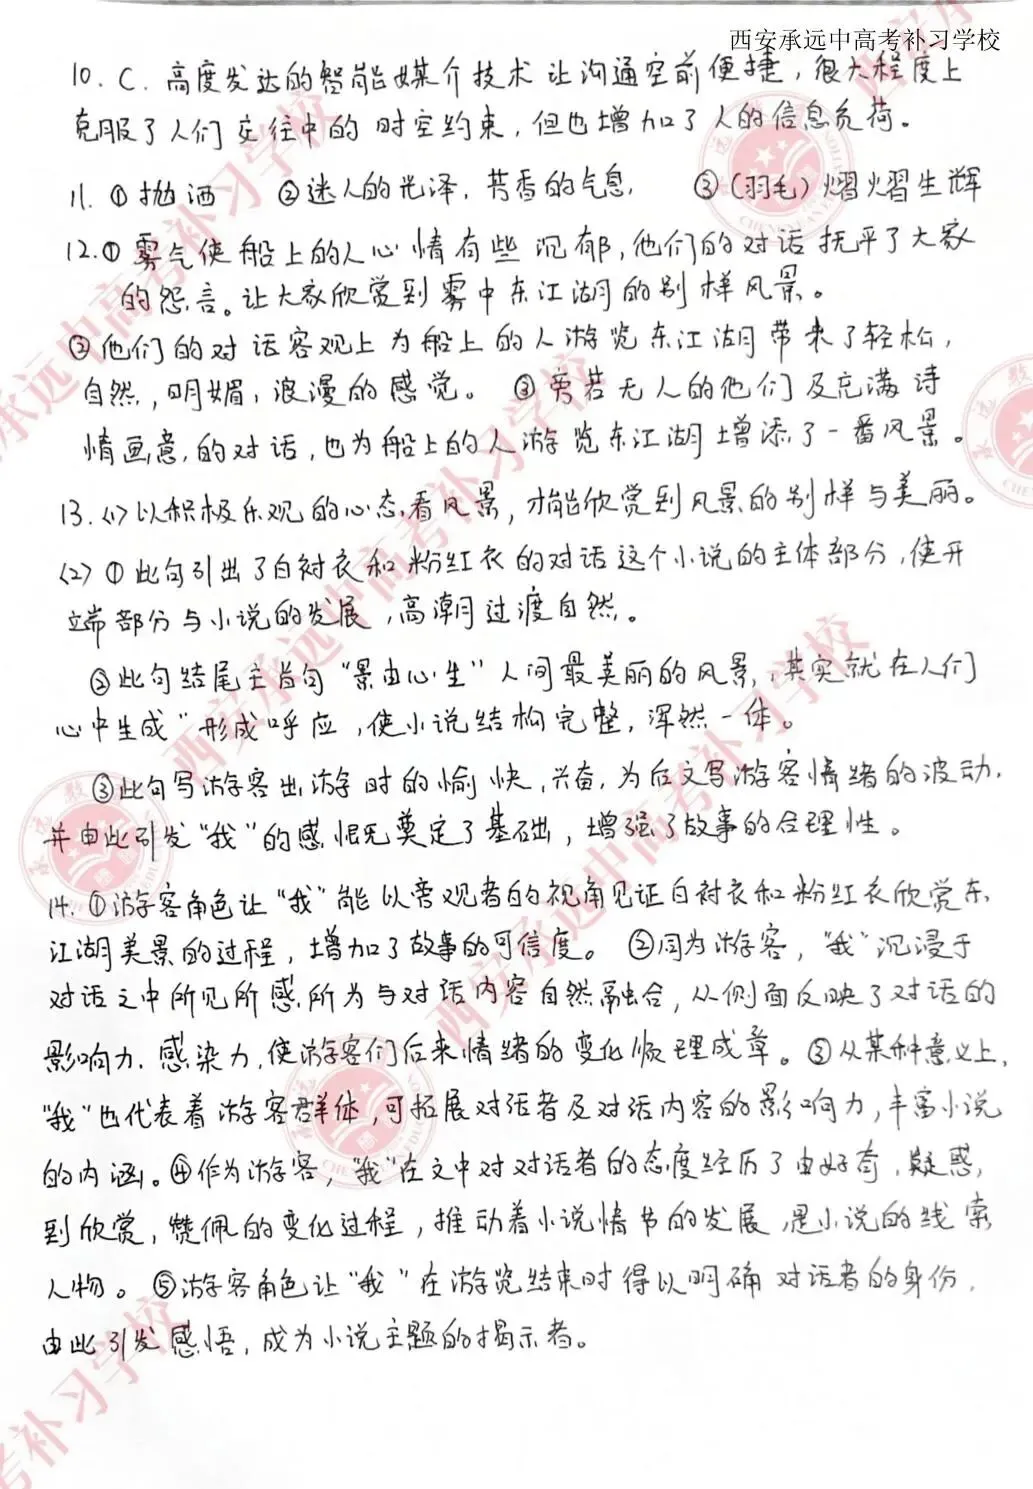 西安承远中高考补习学校
10. C. 高度发达的智能媒介技术让沟通空前便捷，很大程度上
克服了人们交往中的时空约束，但也增加了人的信息负荷。
11. ①抛洒 ②迷人的光泽，芳香的气息 ③(羽毛)熠熠生辉
12.①雾气使船上的人心情有些沉郁，他们的对话抚平了大家
的怨言。让大家欣赏到雾中东江湖的别样风景。
②他们的对话客观上为船上的人游览东江湖带来了轻松，
自然，明媚，浪漫的感觉。 ③旁若无人的他们及充满诗
情画意的对话，也为船上的人游览东江湖增添了一番风景。
13.<1>以积极乐观的心态看风景，才能欣赏到风景的别样与美丽。
<2>①此句引出了白衬衣和粉红衣的对话这个小说的主体部分，使开
端部分与小说的发展，高潮过渡自然。
②此句结尾主旨句“景由心生”人间最美丽的风景，其实就在人们
心中生成”形成呼应，使小说结构完整，浑然一体。
③此句写游客出游时的愉快，兴奋，为后文写游客情绪的波动，
并由此引发“我”的感慨奠定了基础，增强了故事的合理性。
14.①游客角色让“我”能以旁观者的视角见证白衬衣和粉红衣欣赏东
江湖美景的过程，增加了故事的可信度。 ②同为游客，“我”沉浸于
对话之中所见所感所为与对话内容自然融合，从侧面反映了对话的
影响力，感染力，使游客们后来情绪的变化顺理成章。③从某种意义上，
“我”也代表着游客群体，可拓展对话者及对话内容的影响力，丰富小说
的内涵。④作为游客，“我”在文中对对话者的态度经历了由好奇，疑惑，
到欣赏，赞佩的变化过程，推动着小说情节的发展，是小说的线索
人物。⑤游客角色让“我”在游览结束时得以明确对话者的身份，
由此引发感悟，成为小说主题的揭示者。
西安承远中高考补习学校
西安承远中高考补习学校